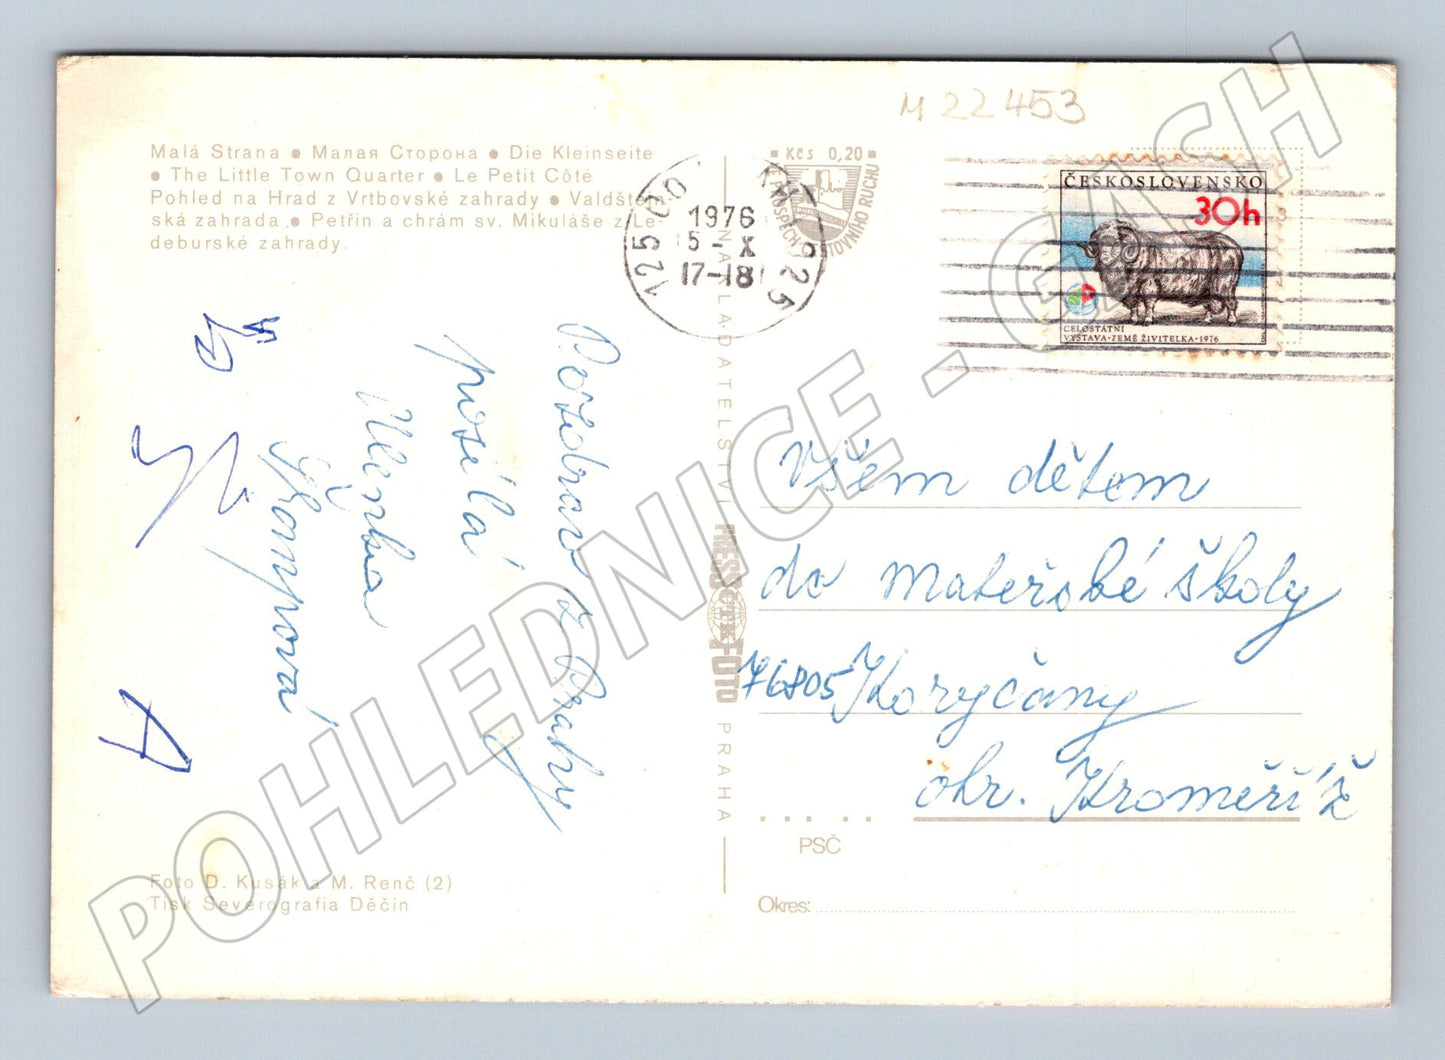 M 22453
Malá Strana • Малая Сторона • Die Kleinseite
• The Little Town Quarter • Le Petit Côté
Pohled na Hrad z Vrtbovské zahrady • Valdště
ská zahrada • Petřín a chrám sv. Mikuláše z Le-
deburské zahrady.
Kčs 0,20
1976
5-X
17-18
125
025
ČESKOSLOVENSKO
30h
CELOSTÁTNÍ
VÝSTAVA·ZEMĚ ŽIVITELKA·1976
Pozdrav z Prahy
posílá
Alenka
NAKLADATELSTVÍ PRESSFOTO PRAHA
Všem dětem
do mateřské školy
76805 Koryčany
okr. Kroměříž
PSČ
Okres:
Foto D. Kusák a M. Renč (2)
Tisk Severografia Děčín
A
POHLEDNICE - CASH